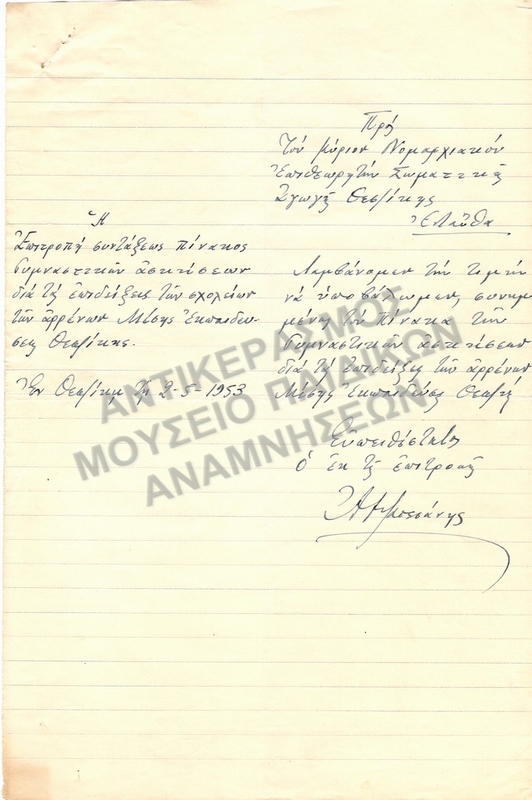 Πρός
Τόν Κύριον Νομαρχιακόν
Ἐπιθεωρητήν Σωματικῆς
Ἀγωγῆς Θεσ/νίκης
Ἐνταῦθα
Ἡ
Ἐπιτροπή συντάξεως πίνακος
Γυμναστικῶν ἀσκήσεων
διά τάς ἐπιδείξεις τῶν σχολείων
τῶν ἀρρένων Μέσης Ἐκπαιδεύ-
σεως Θεσ/νίκης.
Ἐν Θεσ/νίκῃ τῇ 2-5-1953
Λαμβάνομεν τήν τιμήν
νά ὑποβάλωμεν, συνημ-
μένως τόν πίνακα τῶν
Γυμναστικῶν ἀσκήσεων
διά τάς ἐπιδείξεις τῶν ἀρρένων
Μέσης Ἐκπαιδεύσεως Θεσ/νίκης
Εὐπειθέστατος
ὁ ἐκ τῆς ἐπιτροπῆς
ΑΝΤΙΚΕΡΑΣΜΟΣ
ΜΟΥΣΕΙΟ ΠΑΤΑΙΚΩΝ
ΑΝΑΜΝΗΣΕΩΝ